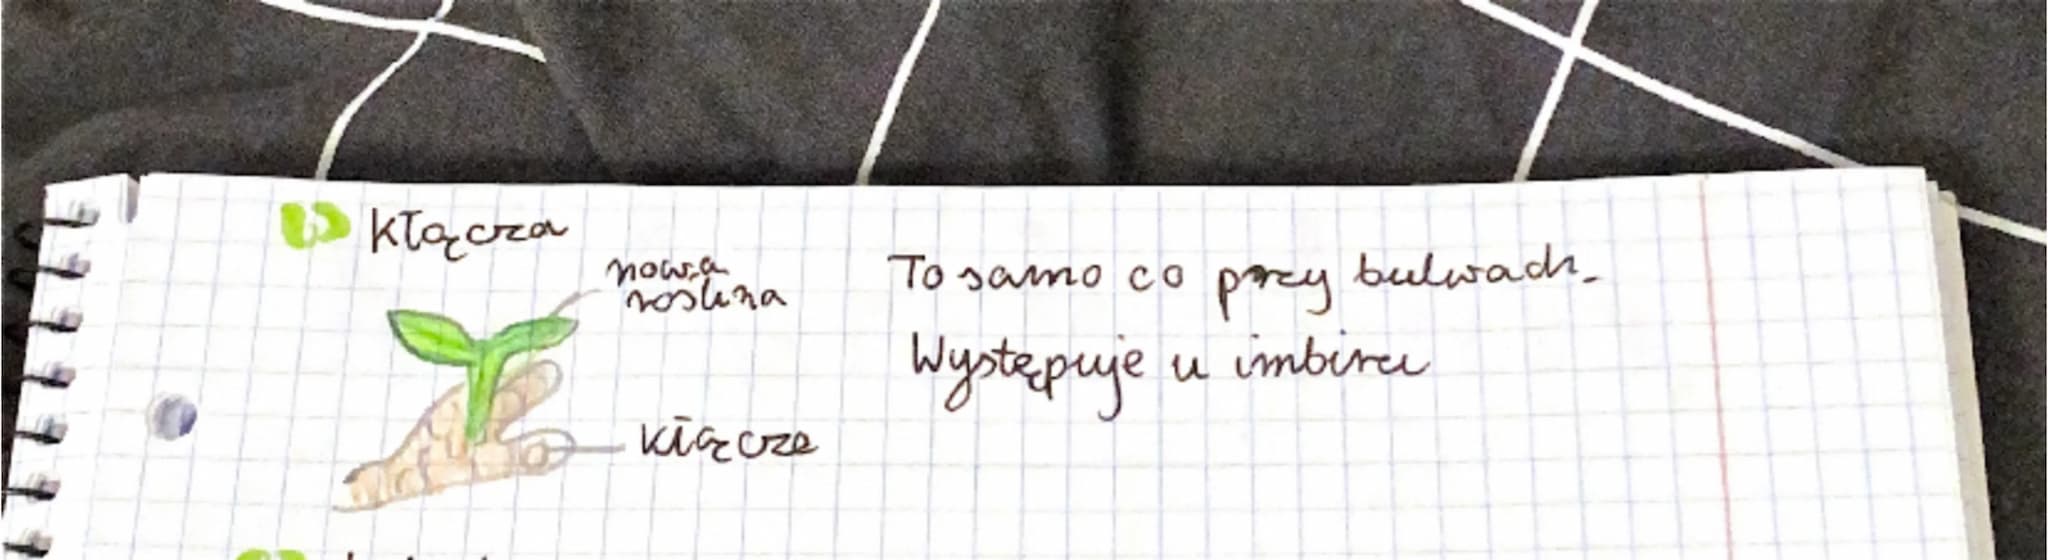 b) Kłącza
nowa
roślina
kłącze
To samo co przy bulwach.
Występuje u imbiru